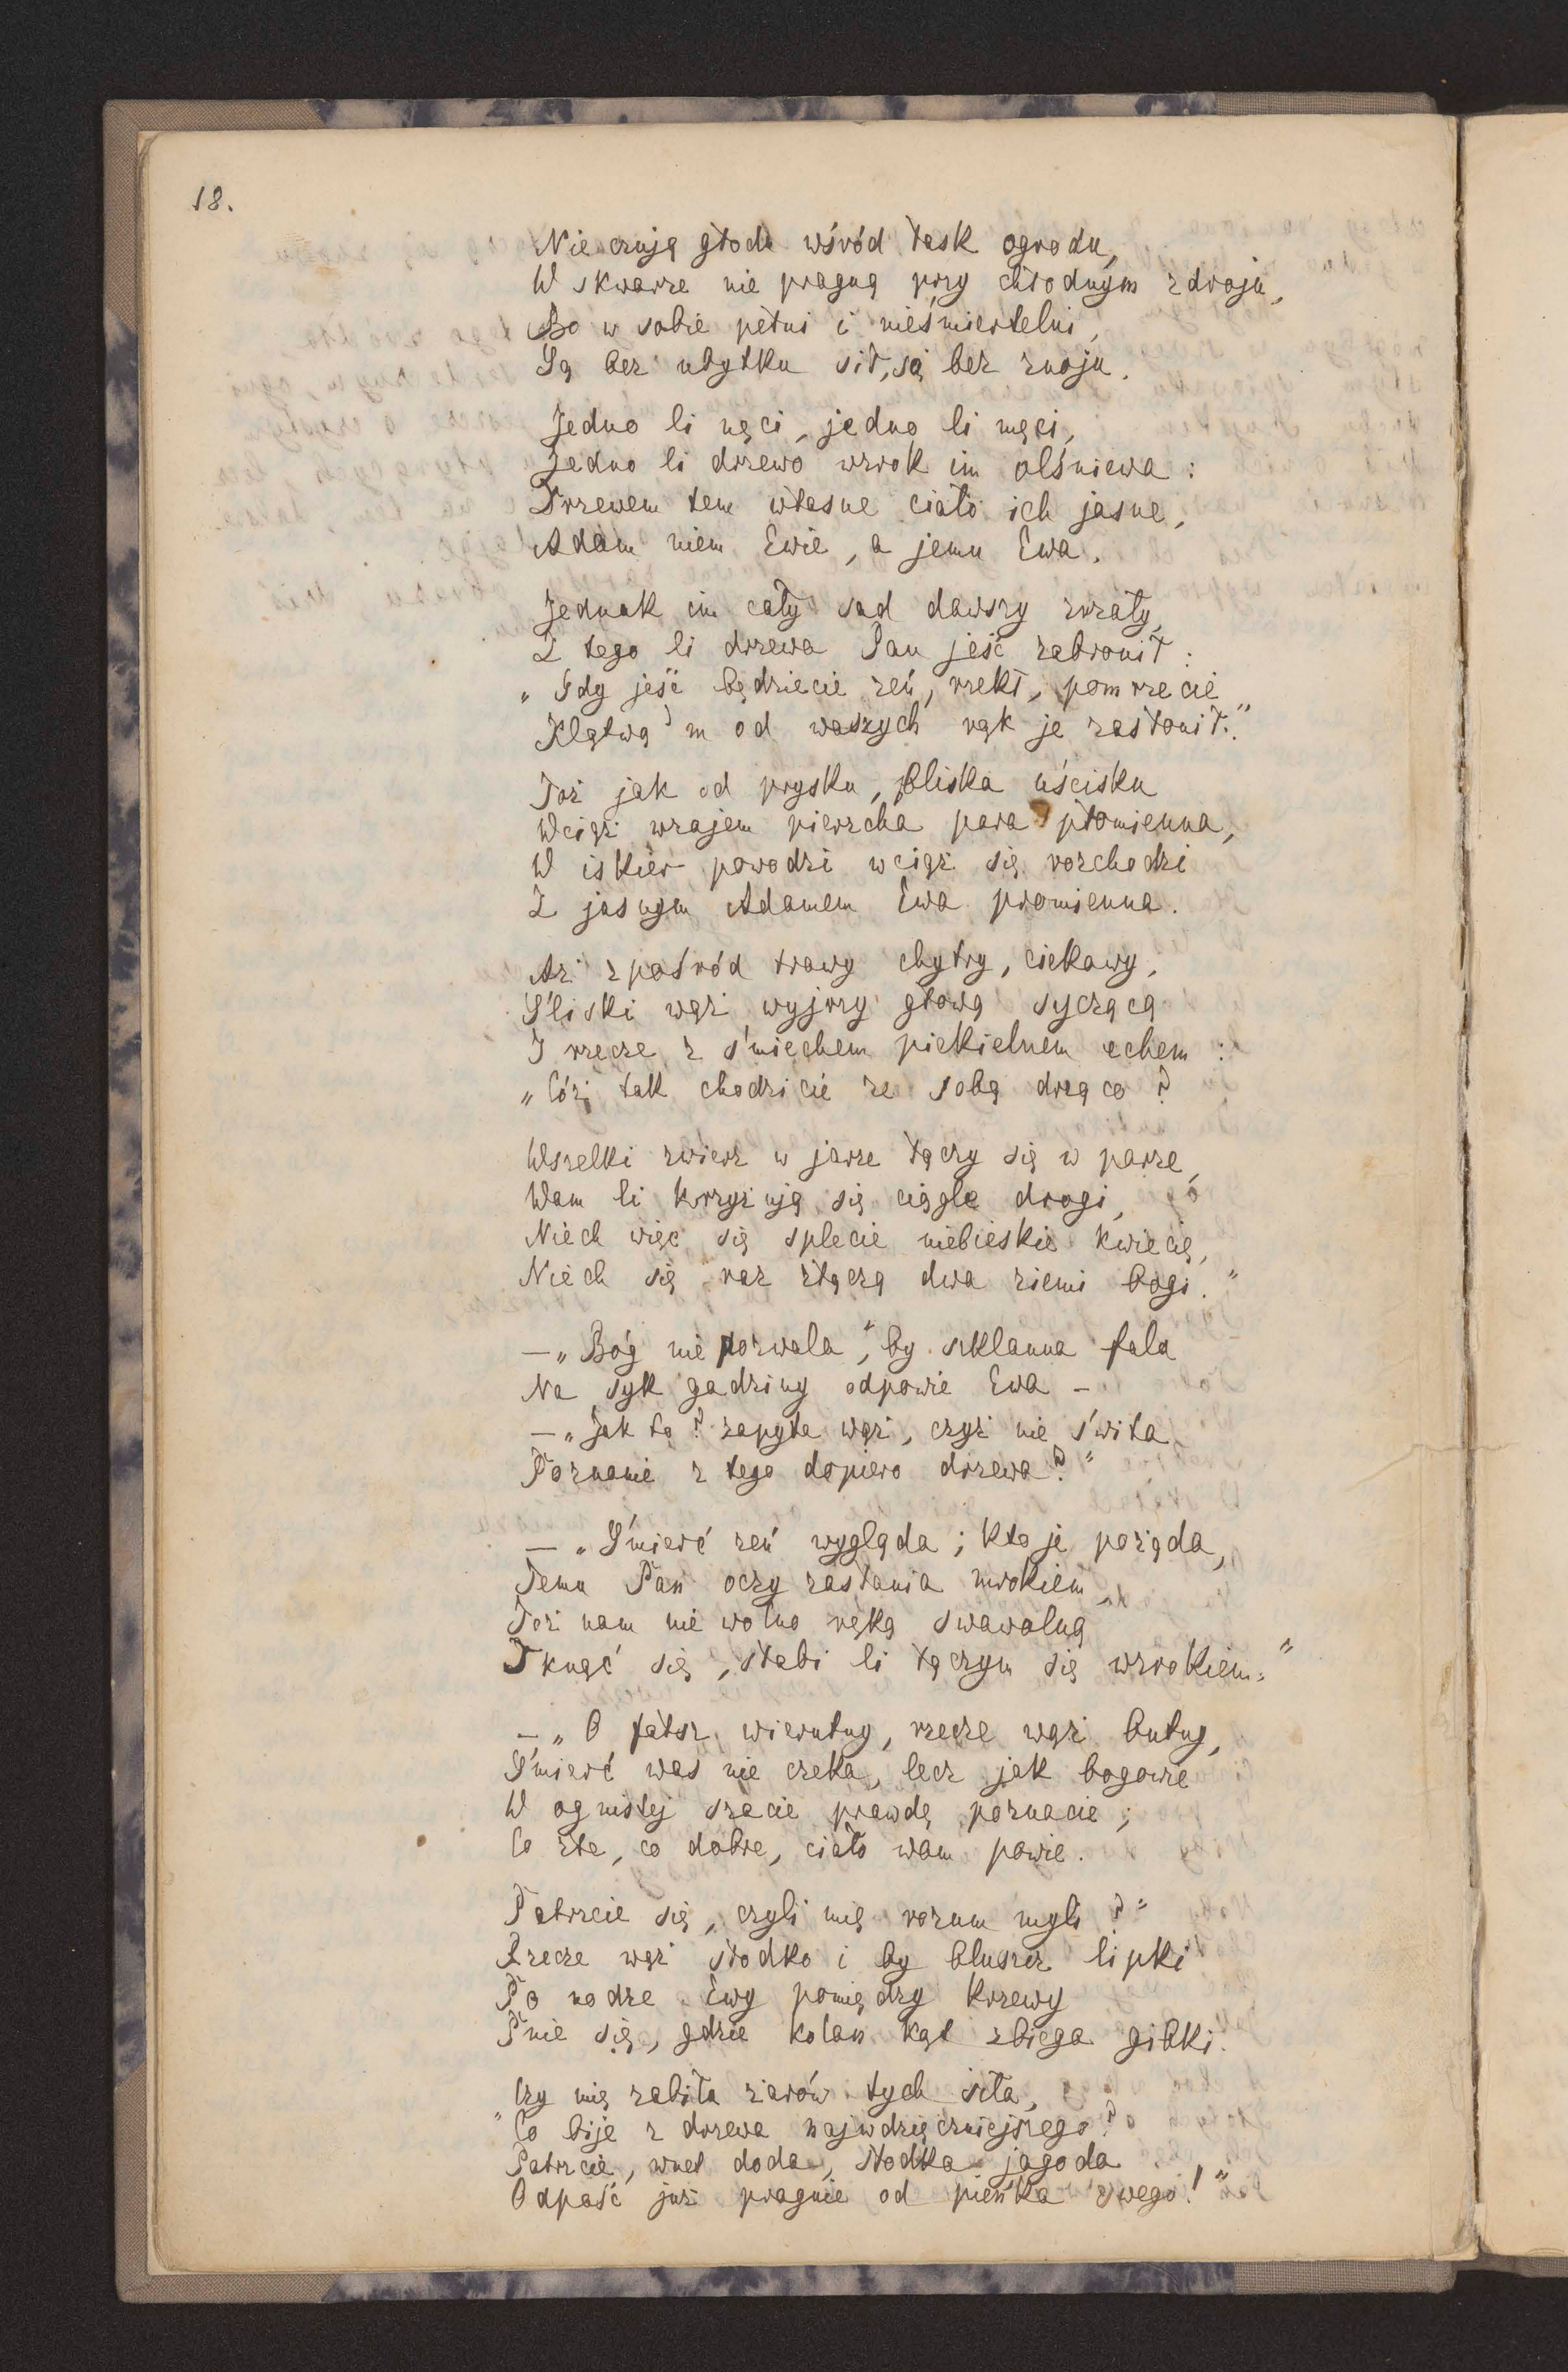 18.
Nie czują głodu wśród łask ogrodu,
W skwarze nie pragną przy chłodnym zdroju,
Bo w sobie pełni i nieśmiertelni,
Są bez ubytku sił, są bez znoju.
Jedno li nęci, jedno li męci,
Jedno li drzewo wzrok im olśniewa:
Drzewem tem własne ciało ich jasne,
Adam niem Ewie, a jemu Ewa.
Jednak im cały sad dawszy zwrały,
Z tego li drzewa Pan jeść zabronił:
„Gdy jeść będziecie zeń, rzekł, pomrzecie
Klątwą'm od waszych rąk je zasłonił."
Toż jak od prysku, bliska uścisku
Wciąż wzajem pierzcha para płomienna,
W iskier powodzi wciąż się rozchodzi
Z jasnym Adamem Ewa promienna.
Aż zpośród trawy chytry, ciekawy,
Śliski wąż wyjrzy głową syczącą
I rzecze z śmiechem piekielnem echem:
„Cóż tak chodzicie ze sobą drżąco?
Wszelki zwierz w jarze łączy się w parze,
Wam li krzyżują się ciągle drogi,
Niech więc się splecie niebieskie kwiecie,
Niech się raz złączą dwa ziemi bogi."
— „Bóg nie pozwala", by szklanna fala
Na syk gadziny odpowie Ewa –
— „Jak to? zapyta wąż, czyż nie świta
Poznanie z tego dopiero drzewa?"
— „Śmierć zeń wygląda; kto je pożąda,
Temu Pan oczy zasłania mrokiem,
Toż nam nie wolno ręką swawolną
Tknąć się, słabi li łączym się wzrokiem."
— „O fałsz wierutny, rzecze wąż butny,
Śmierć was nie czeka, lecz jak bogowie
W ognistej szacie prawdę poznacie;
Co złe, co dobre, ciało wam powie.
Patrzcie się, czyli mię rozum myli?"
Rzecze wąż słodko i by bluszcz lipki
Po nodze Ewy pomiędzy krzewy
Pnie się, gdzie kolan kąt zbiega gibki.
„Czy mię zabiła żarów tych siła,
Co bije z drzewa najwdzięczniejszego?
Patrzcie, wnet doda, słodka jagoda
Odpaść już pragnie od pieńka swego!"